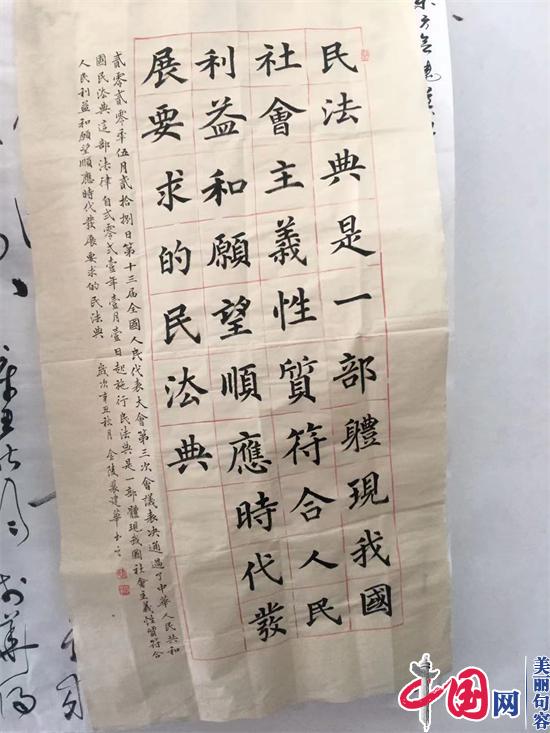 民法典是一部體現我國
社會主義性質符合人民
利益和願望順應時代發
展要求的民法典
貳零貳零年伍月貳拾捌日第十三届全國人民代表大會第三次會議表决通過了中華人民共和
國民法典這部法律自弍零弍壹年壹月壹日起施行民法典是一部體現我國社會主義性質符合
人民利益和願望順應時代發展要求的民法典 歲次辛丑秋月 金陵建華书
中国网
美丽句容